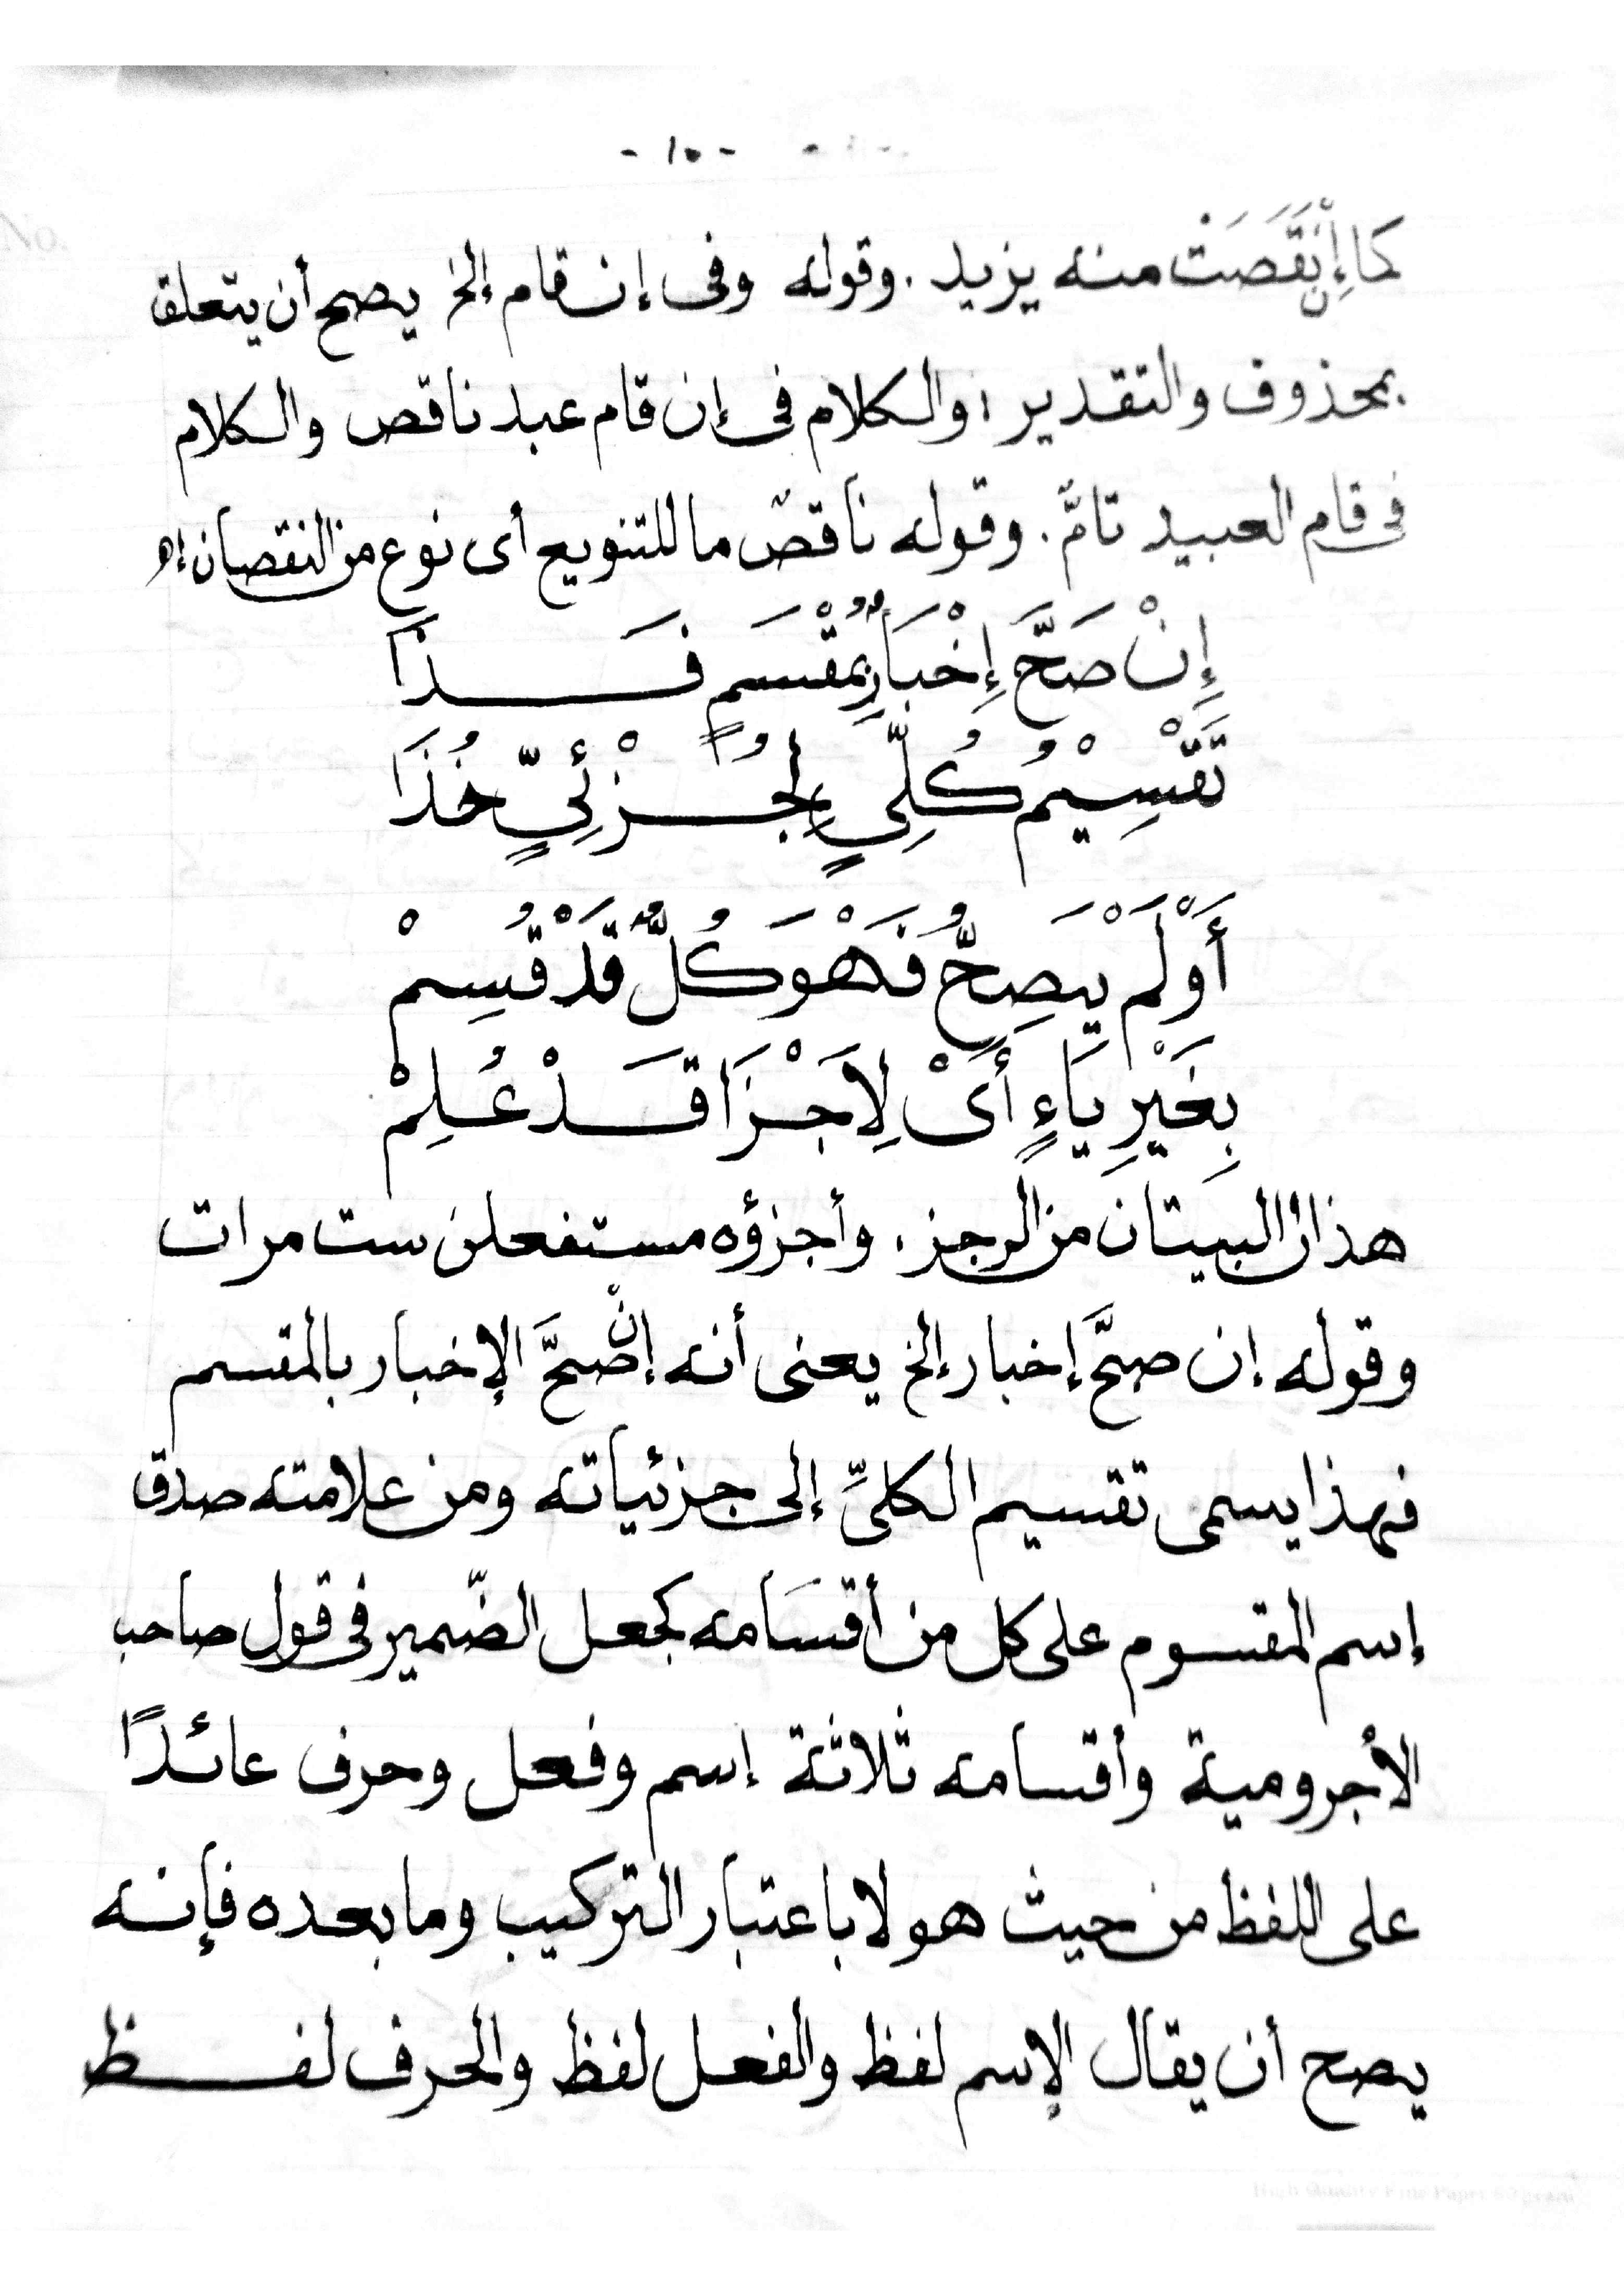 - ١٠ -
كما إن نَقَصَتْ منه يزيد . وقوله وفى إن قام إلخ يصح أن يتعلق
بمحذوف والتقدير : والكلام فى إن قام عبد ناقص والكلام
فى قام العبيد تامٌّ . وقوله ناقصٌ ما للتنويع أى نوع من النقصان اهـ
إِنْ صَحَّ إِخْبَارٌ بِمَقْسَمٍ فَذَا
تَقْسِيْمُ كُلِّيٍّ لِجُزْئِيٍّ خُذَا
أَوْ لَمْ يَصِحُّ فَهْوَ كُلٌّ قَدْ قُسِمْ
بِغَيْرِ يَاءٍ أَىْ لِاَجْزَا قَدْ عُلِمْ
هذان البيتان من الرجز ، وأجزؤه مستفعلن ست مرات
وقوله إن صحَّ إخبار إلخ يعنى أنه إنْ صحَّ الإخبار بالمقسم
فهذا يسمى تقسيم الكلىِّ إلى جزئياته ومن علامته صدق
إسم المقسوم على كل من أقسَامه كجعل الضّمير فى قول صاحب
الأجرومية وأقسامه ثلاثة إسم وفعل وحرف عائدًا
على اللفظ من حيث هو لا باعتبار التركيب وما بعده فإنه
يصح أن يقال الإسم لفظ والفعل لفظ والحرف لفظ